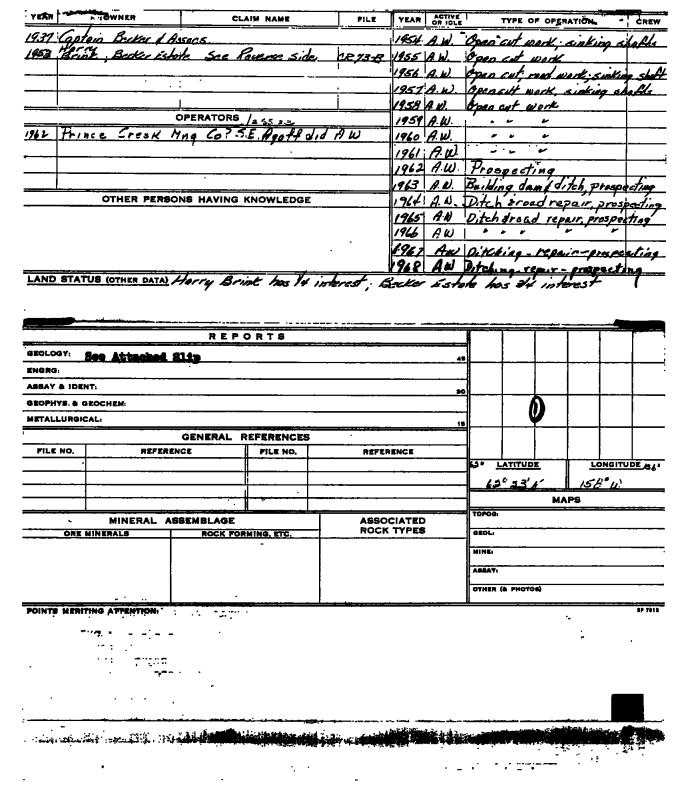 YEAR OWNER CLAIM NAME FILE YEAR ACTIVE OR IDLE TYPE OF OPERATION CREW
1937 Captain Becker & Assocs.
1953 Harry Brink, Becker Estate See Reverse Side CR 73-B
1954 A.W. Open cut work, sinking shafts
1955 A.W. Open cut work
1956 A.W. Open cut, road work, sinking shaft
1957 A.W. Open cut work, sinking shafts
1958 A.W. Open cut work
OPERATORS
1959 A.W. " " "
1962 Prince Creek Mng Co? S.E. Agoff did A W
1960 A.W. " " "
1961 A.W. " " "
1962 A.W. Prospecting
1963 A.W. Building dam & ditch, prospecting
OTHER PERSONS HAVING KNOWLEDGE
1964 A.W. Ditch & road repair, prospecting
1965 AW Ditch & road repair, prospecting
1966 AW " " " "
1967 AW Ditching - repair - prospecting
1968 AW Ditching - repair - prospecting
LAND STATUS (OTHER DATA) Harry Brink has 1/4 interest; Becker Estate has 3/4 interest
REPORTS
GEOLOGY: See Attached Slip 45
ENGRG:
ASSAY & IDENT: 30
GEOPHYS. & GEOCHEM:
METALLURGICAL: 15
GENERAL REFERENCES
FILE NO. REFERENCE FILE NO. REFERENCE
63° LATITUDE LONGITUDE 156°
62° 33' N 158° W
MAPS
MINERAL ASSEMBLAGE
ORE MINERALS ROCK FORMING, ETC.
ASSOCIATED ROCK TYPES
TOPOG:
GEOL:
MINE:
ASSAY:
OTHER (& PHOTOS)
POINTS MERITING ATTENTION: